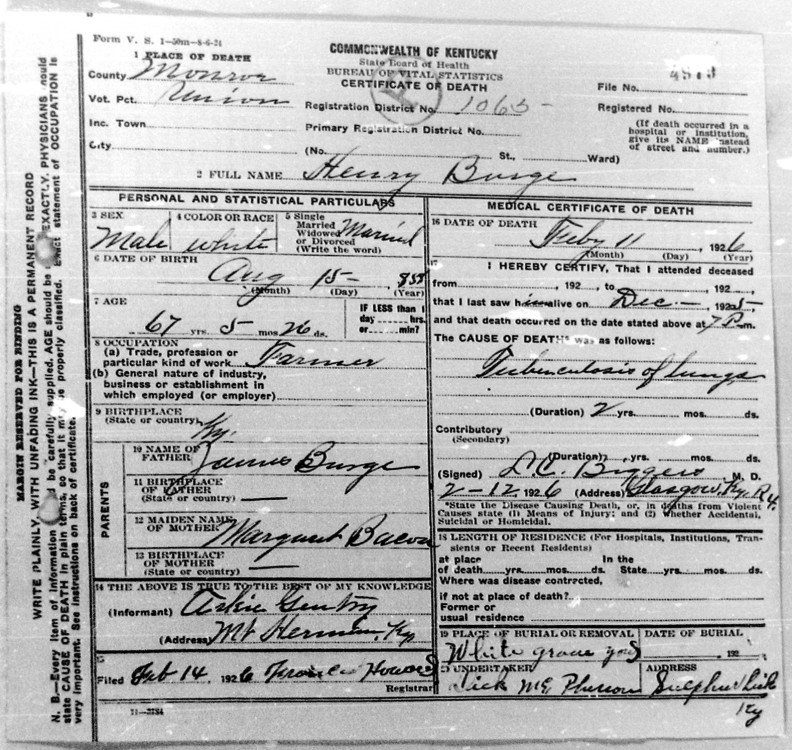 Form V. S. 1—50m—8-6-24
COMMONWEALTH OF KENTUCKY
State Board of Health
BUREAU OF VITAL STATISTICS
CERTIFICATE OF DEATH
1 PLACE OF DEATH
County Monroe
Vot. Pct. Union
Inc. Town
City
Registration District No. 1065
Primary Registration District No.
(No. St., Ward)
File No. 4919
Registered No.
(If death occurred in a
hospital or institution,
give its NAME instead
of street and number.)
2 FULL NAME Henry Burge
PERSONAL AND STATISTICAL PARTICULARS
3 SEX Male
4 COLOR OR RACE white
5 Single
Married
Widowed
or Divorced
(Write the word) Married
6 DATE OF BIRTH
Aug 15- 858
(Month) (Day) (Year)
7 AGE
67 yrs. 5 mos. 26 ds.
IF LESS than 1
day hrs.
or min?
8 OCCUPATION
(a) Trade, profession or
particular kind of work Farmer
(b) General nature of industry,
business or establishment in
which employed (or employer)
9 BIRTHPLACE
(State or country) Ky.
PARENTS
10 NAME OF
FATHER James Burge
11 BIRTHPLACE
OF FATHER
(State or country) —
12 MAIDEN NAME
OF MOTHER Margaret Bacon
13 BIRTHPLACE
OF MOTHER
(State or country) —
14 THE ABOVE IS TRUE TO THE BEST OF MY KNOWLEDGE
(Informant) Arkie Gentry
(Address) Mt Herman, Ky
15
Filed Feb 14 1926 Howard
Registrar
11—3184
MEDICAL CERTIFICATE OF DEATH
16 DATE OF DEATH
Feby 11, 1926
(Month) (Day) (Year)
17 I HEREBY CERTIFY, That I attended deceased
from , 192 , to , 192 ,
that I last saw him alive on Dec — , 1925,
and that death occurred on the date stated above at 7 P m.
The CAUSE OF DEATH* was as follows:
Tuberculosis of lungs
(Duration) 2 yrs. mos. ds.
Contributory
(Secondary)
(Duration) yrs. mos. ds.
(Signed) L.C. Biggers M. D.
2-12 1926 (Address) Glasgow, Ky. R4.
*State the Disease Causing Death, or, in deaths from Violent
Causes state (1) Means of Injury; and (2) Whether Accidental,
Suicidal or Homicidal.
18 LENGTH OF RESIDENCE (For Hospitals, Institutions, Tran-
sients or Recent Residents)
at place In the
of death yrs. mos. ds. State yrs. mos. ds.
Where was disease contracted,
if not at place of death?
Former or
usual residence
19 PLACE OF BURIAL OR REMOVAL
White grave yd
DATE OF BURIAL
, 192
20 UNDERTAKER
Dick McPherson
ADDRESS
Sulphur Lick
Ky
MARGIN RESERVED FOR BINDING
WRITE PLAINLY, WITH UNFADING INK—THIS IS A PERMANENT RECORD
N. B.—Every item of information should be carefully supplied. AGE should be EXACTLY. PHYSICIANS should
state CAUSE OF DEATH in plain terms, so that it may be properly classified. Exact statement of OCCUPATION is
very important. See instructions on back of certificate.